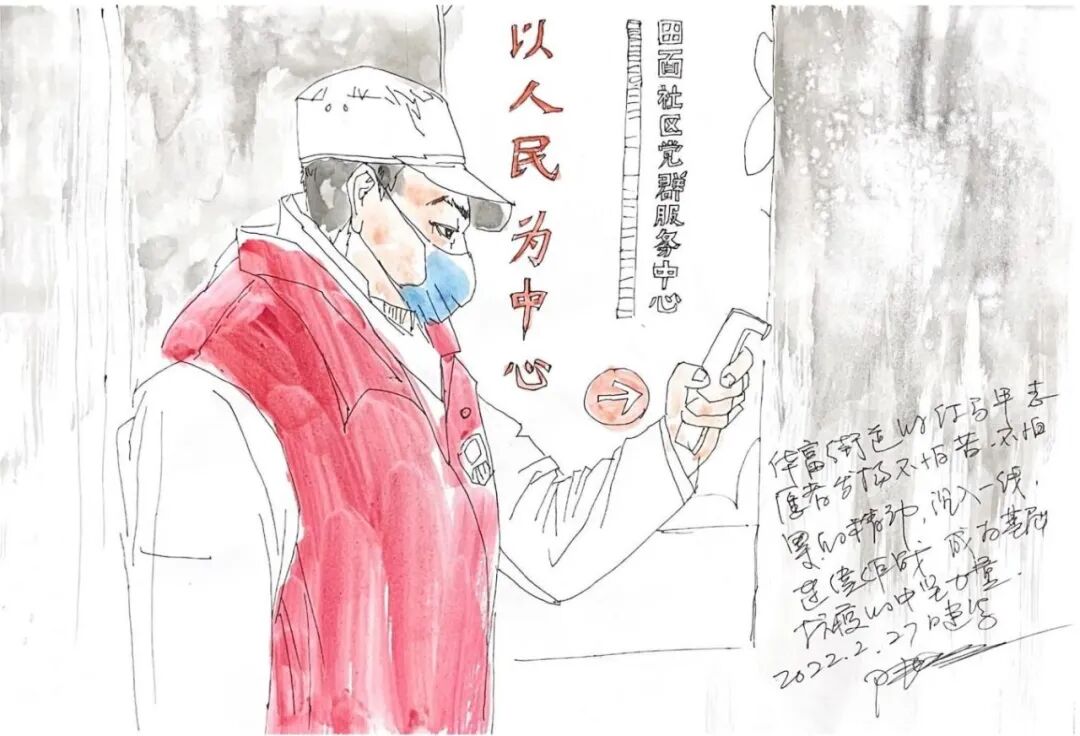 以人民为中心
田面社区党群服务中心
华富街道的红马甲志
愿者发扬不怕苦、不怕
累的精神,深入一线,
连续作战,成为基层
抗疫的中坚力量.
2022.2.27日